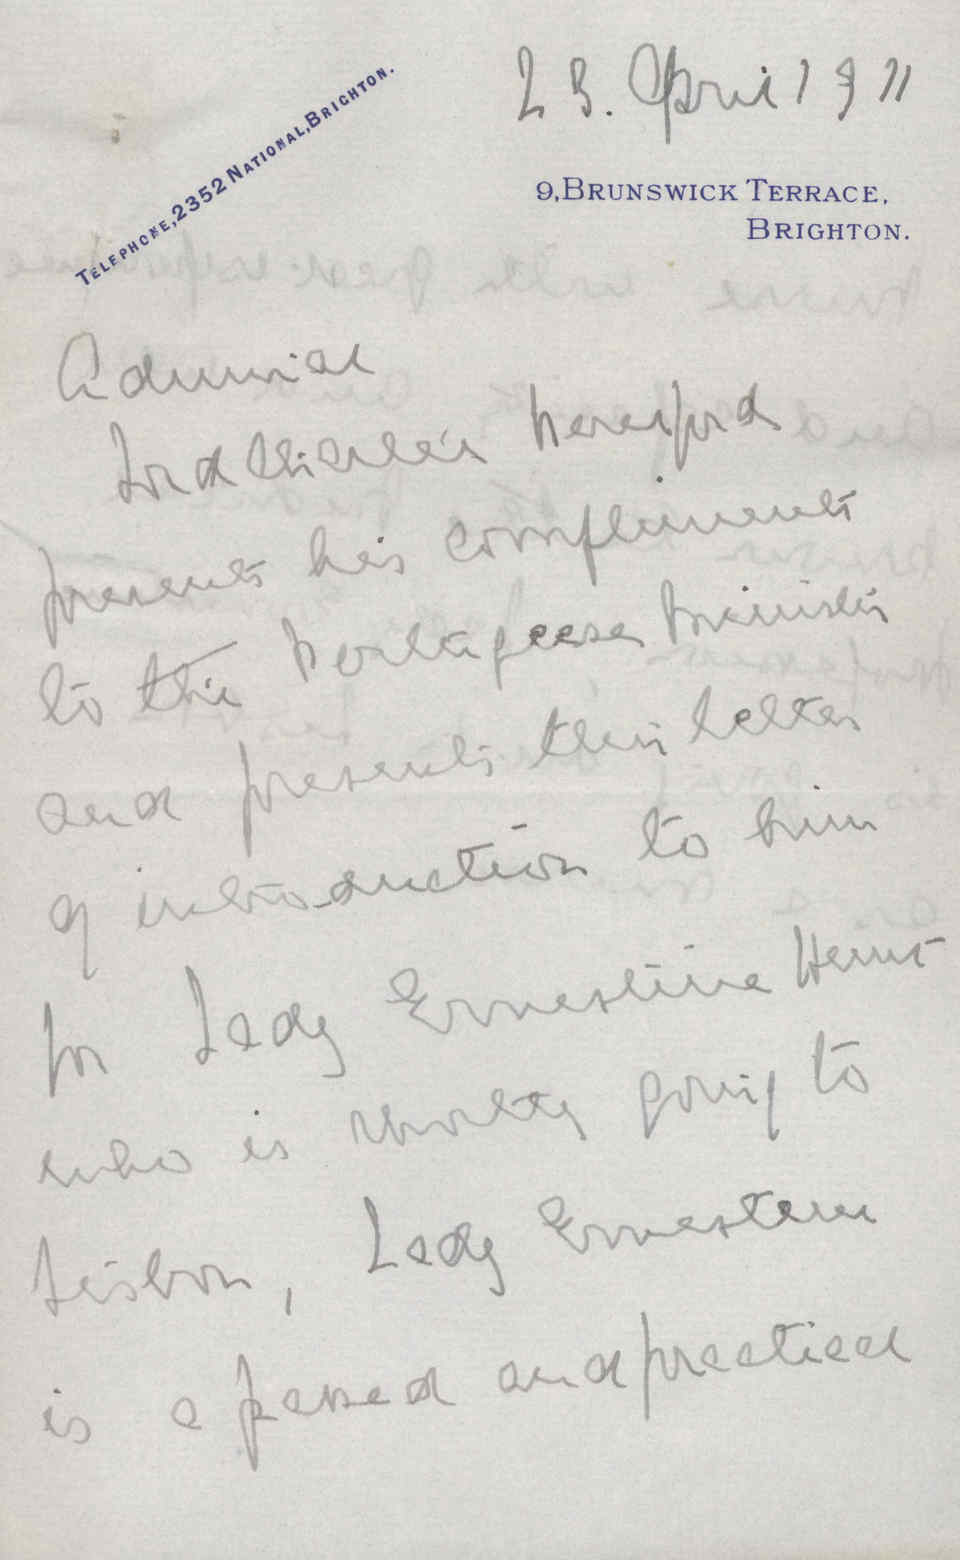 23. April 1911
TELEPHONE, 2352 NATIONAL, BRIGHTON.
9, BRUNSWICK TERRACE,
BRIGHTON.
Admiral
Lord Charles Beresford
presents his compliments
to the Portugeese Minister
and presents this letter
of introduction to him
for Lady Ernestine Hunt
who is shortly going to
Lisbon, Lady Ernestein
is a passed and practical